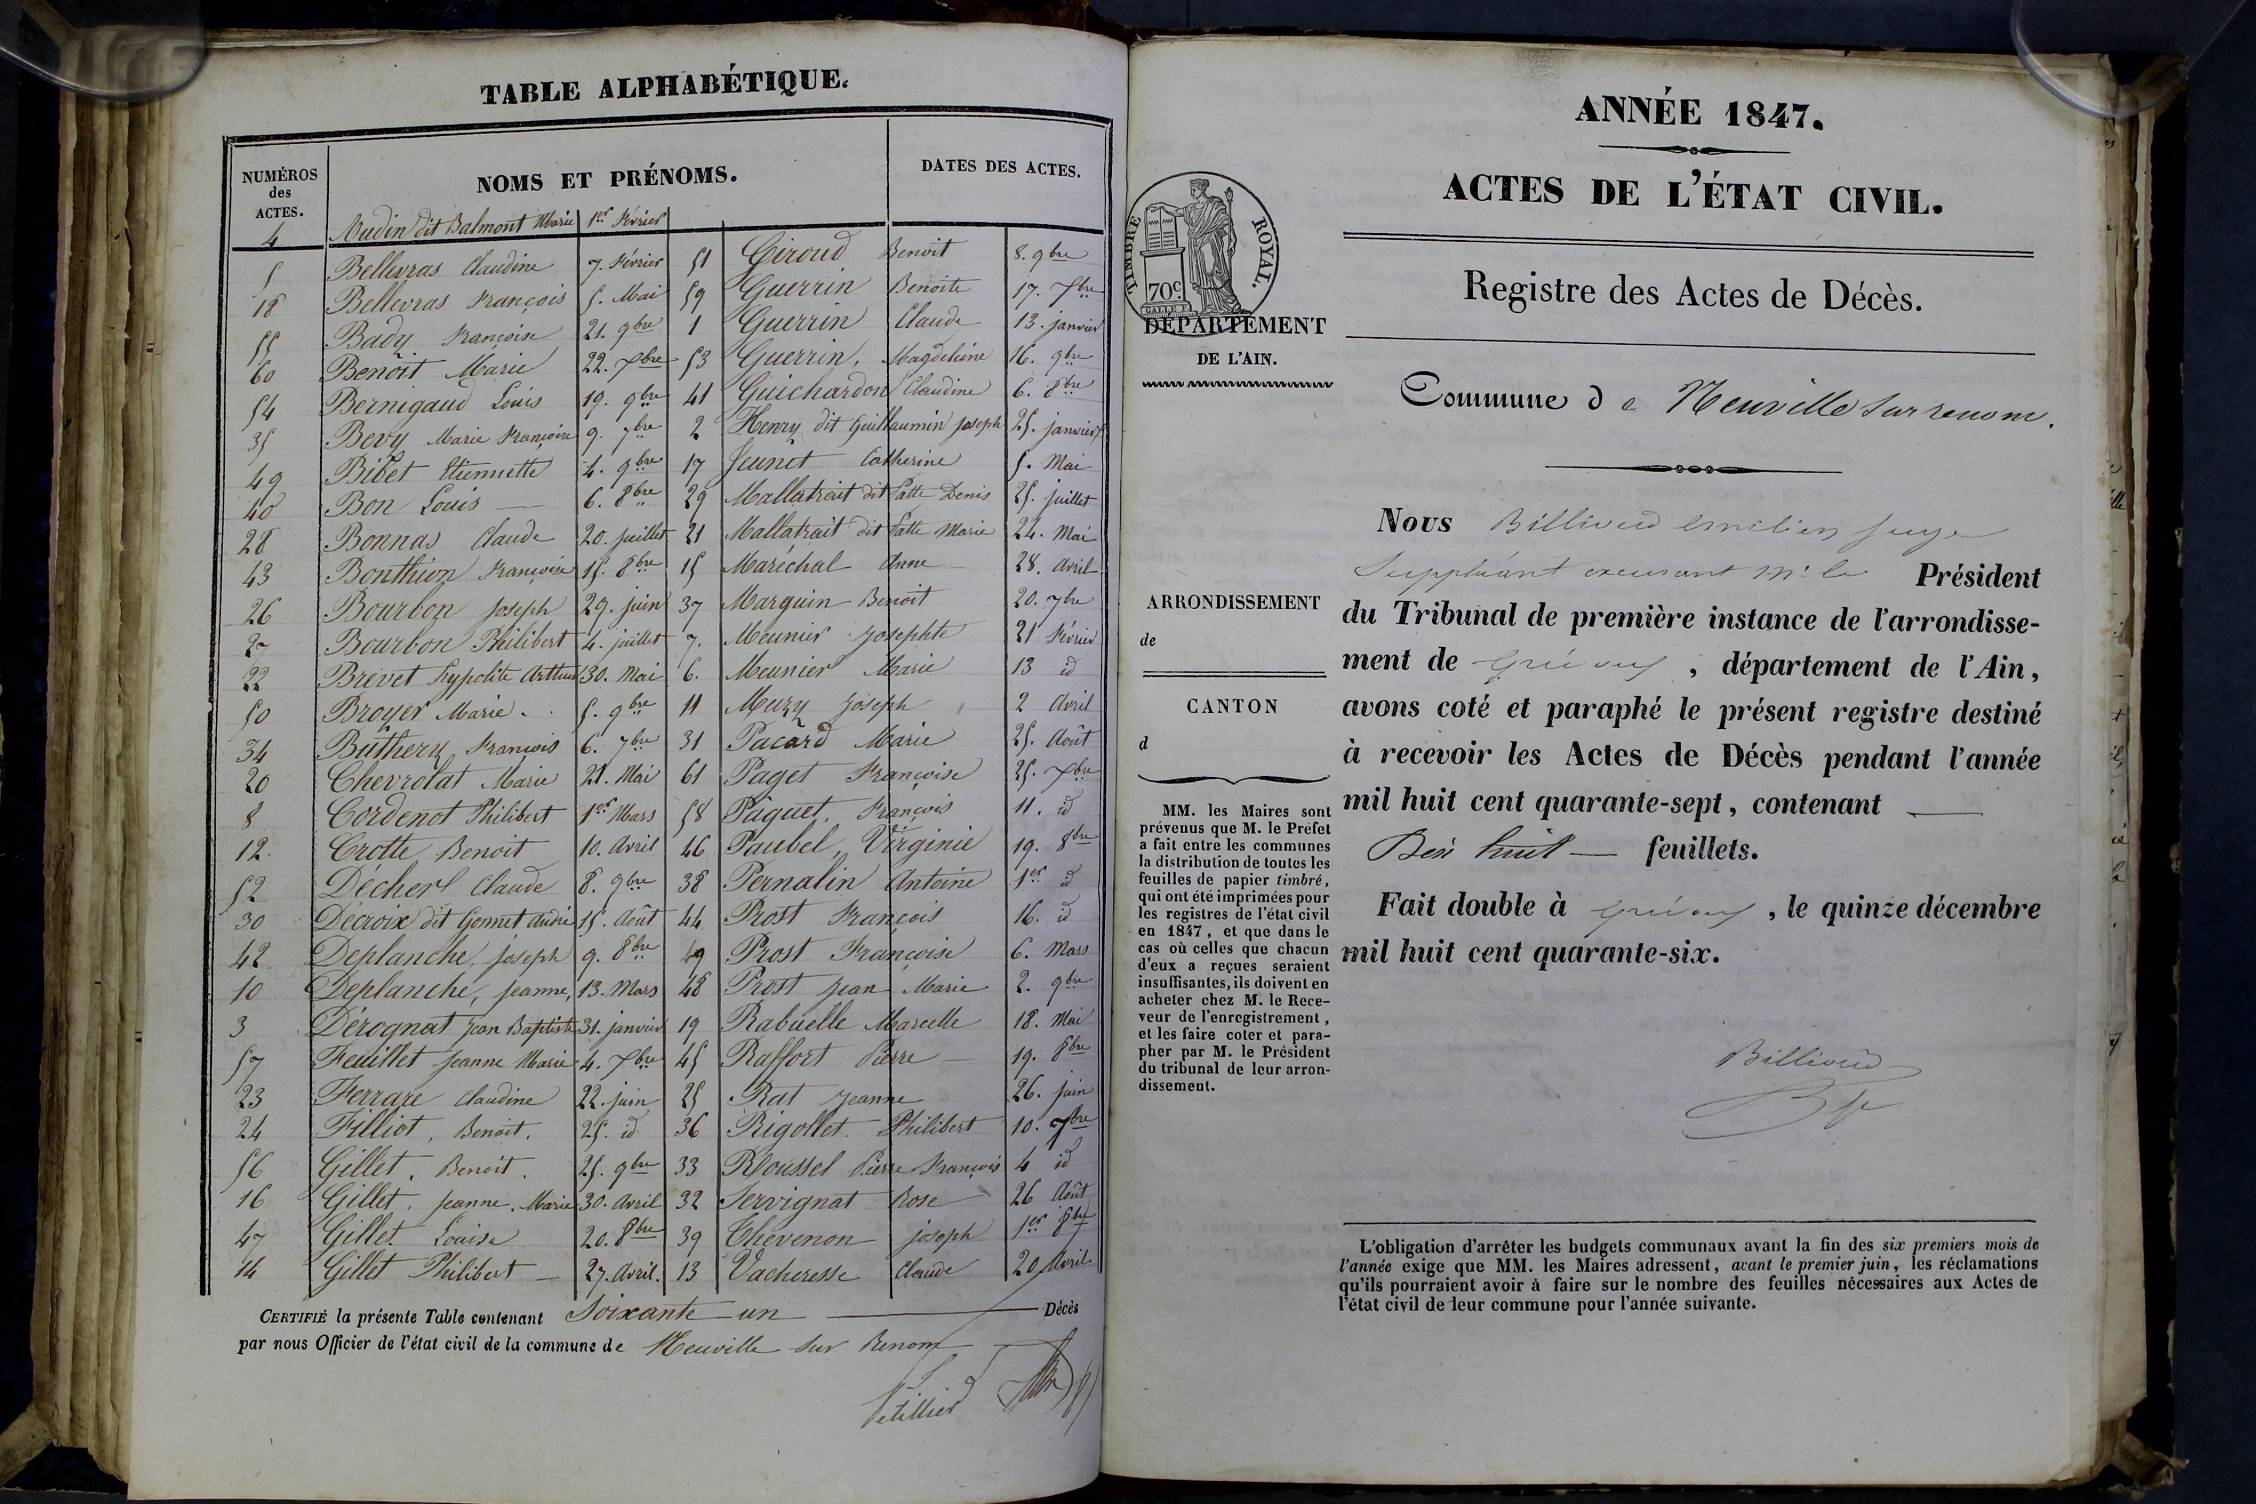 TABLE ALPHABÉTIQUE.
NUMÉROS des ACTES.
NOMS ET PRÉNOMS.
DATES DES ACTES.
4 Audin dit Balmont Marie 1er Février
5 Bellevras Claudine 7. Février
18 Bellevras François 5. Mai
55 Bady Françoise 21. 9bre
60 Benoit Marie 22. Xbre
54 Bernigaud Louis 19. 9bre
35 Bevy Marie Françoise 9. 7bre
49 Bibet Etiennette 4. 9bre
40 Bon Louis 6. 8bre
28 Bonnas Claude 20. juillet
43 Bonthion Françoise 15. 8bre
26 Bourbon joseph 29. juin
27 Bourbon Philibert 4. juillet
22 Brevet hypolite Arthur 30. Mai
50 Broyer Marie. 5. 9bre
34 Buthery François 6. 7bre
20 Chevrolat Marie 21. Mai
8 Cordenot Philibert 1er Mars
12. Crotte Benoit 10. Avril
52 Décherl Claude 8. 9bre
30 Décroix dit Gonnet André 15. Août
42 Deplanche, joseph 9. 8bre
10 Deplanche, jeanne, 13. Mars
3 Dérognat jean Baptiste 31. janvier
57 Feuillet jeanne Marie 4. Xbre
23 Ferrare Claudine 22. juin
24 Filliot, Benoit. 25. id
56 Gillet, Benoit. 25. 9bre
16 Gillet, jeanne. Marie 30. Avril
47 Gillet Louise 20. 8bre
14 Gillet Philibert 27. Avril.
51 Giroud Benoit 8. 9bre
59 Guerrin Benoite 17. Xbre
1 Guerrin Claude 13. janvier
53 Guerrin, Magdeleine 16. 9bre
41 Guichardon Claudine 6. 8bre
2 Henry dit Guillaumin joseph 25. janvier
17 Jeunet Catherine 5. Mai
29 Mallatrait dit Patte Denis 25. juillet
21 Mallatrait dit Patte Marie 24. Mai
15 Maréchal Anne 28. Avril
37 Marguin Benoit 20. 7bre
7. Meunier Josephte 21 Février
6. Meunier Marie 13 id
11 Muzy joseph 2 Avril
31 Pacard Marie 25. Août
61 Paget Françoise 25. Xbre
58 Paquet, François 11. id
46 Paubel, Virginie 19. 8bre
38 Pernalin Antoine 1er id
44 Prost François 16. id
49 Prost Françoise 6. Mars
48 Prost jean Marie 2. 9bre
19 Rabuelle Marcelle 18. Mai
45 Raffort Pierre 19. 8bre
25 Rat jeanne 26. juin
36 Rigollet. Philibert 10. 7bre
33 Roussel Pierre François 4 id
32 Servignat Rose 26 Août
39 Thevenon joseph 1er 8bre
13 Vacheresse Claude 20 Avril
CERTIFIÉ la présente Table contenant Soixante un Décès
par nous Officier de l'état civil de la commune de Neuville sur Renom
Petillier
ANNÉE 1847.
ACTES DE L'ÉTAT CIVIL.
TIMBRE ROYAL.
70c.
Registre des Actes de Décès.
DÉPARTEMENT
DE L'AIN.
Commune de Neuville sur renom.
Nous Billioud Emilien juge
Suppléant excusant Mr. le Président
du Tribunal de première instance de l'arrondisse-
ment de , département de l'Ain,
avons coté et paraphé le présent registre destiné
à recevoir les Actes de Décès pendant l'année
mil huit cent quarante-sept, contenant
huit feuillets.
Fait double à , le quinze décembre
mil huit cent quarante-six.
Billioud
ARRONDISSEMENT
de
CANTON
d
MM. les Maires sont
prévenus que M. le Préfet
a fait entre les communes
la distribution de toutes les
feuilles de papier timbré,
qui ont été imprimées pour
les registres de l'état civil
en 1847, et que dans le
cas où celles que chacun
d'eux a reçues seraient
insuffisantes, ils doivent en
acheter chez M. le Rece-
veur de l'enregistrement,
et les faire coter et para-
pher par M. le Président
du tribunal de leur arron-
dissement.
L'obligation d'arrêter les budgets communaux avant la fin des six premiers mois de
l'année exige que MM. les Maires adressent, avant le premier juin, les réclamations
qu'ils pourraient avoir à faire sur le nombre des feuilles nécessaires aux Actes de
l'état civil de leur commune pour l'année suivante.